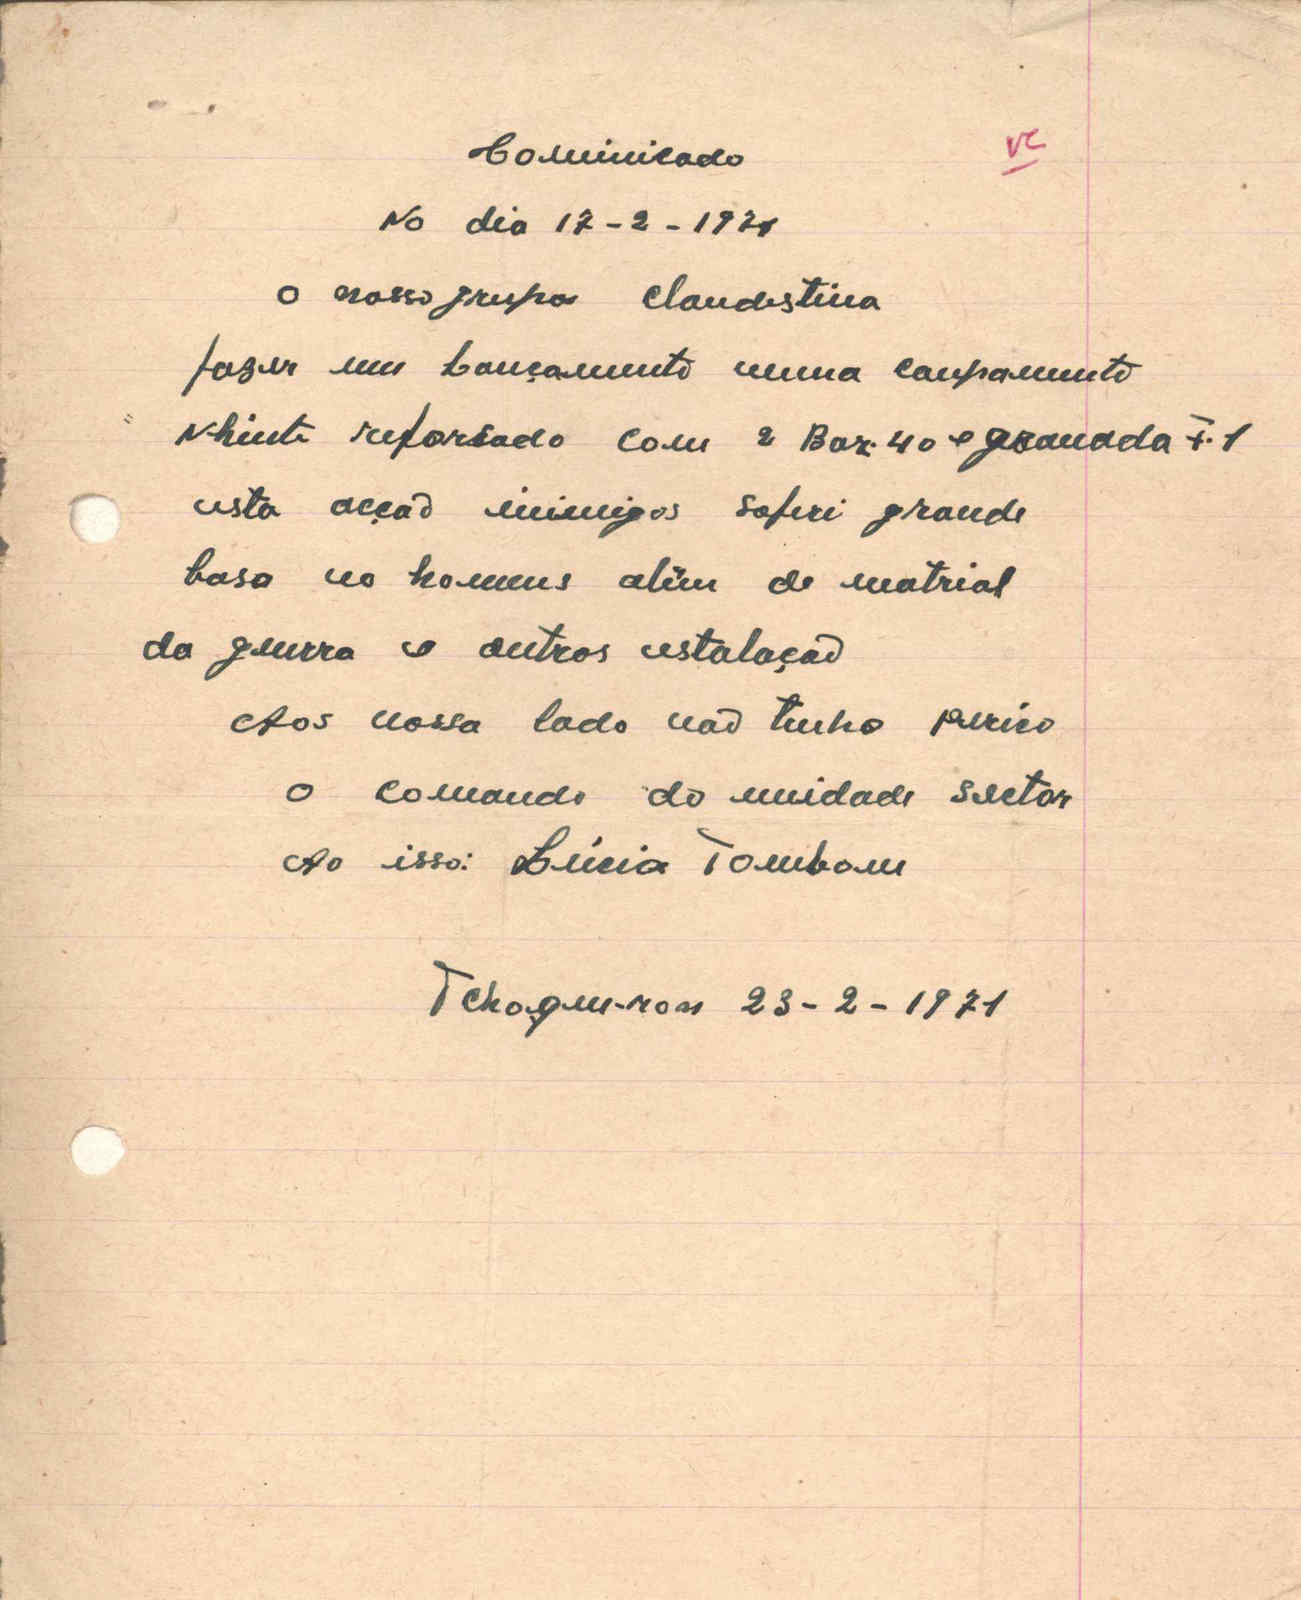 Cominicado
vc
No dia 17-2-1971
O nosso grupo clandestina
fazer um lançamento numa canpamento
Nhinte reforsado com 2 Baz. 40 e granada F.1
esta acção inimigos soferi grande
basa no homens alêm de matrial
da guerra e outros estalação
Aos nossa lado não tenho perico
O comando do unidade sector
Ao isso: Lúcia Tombom
23-2-1971